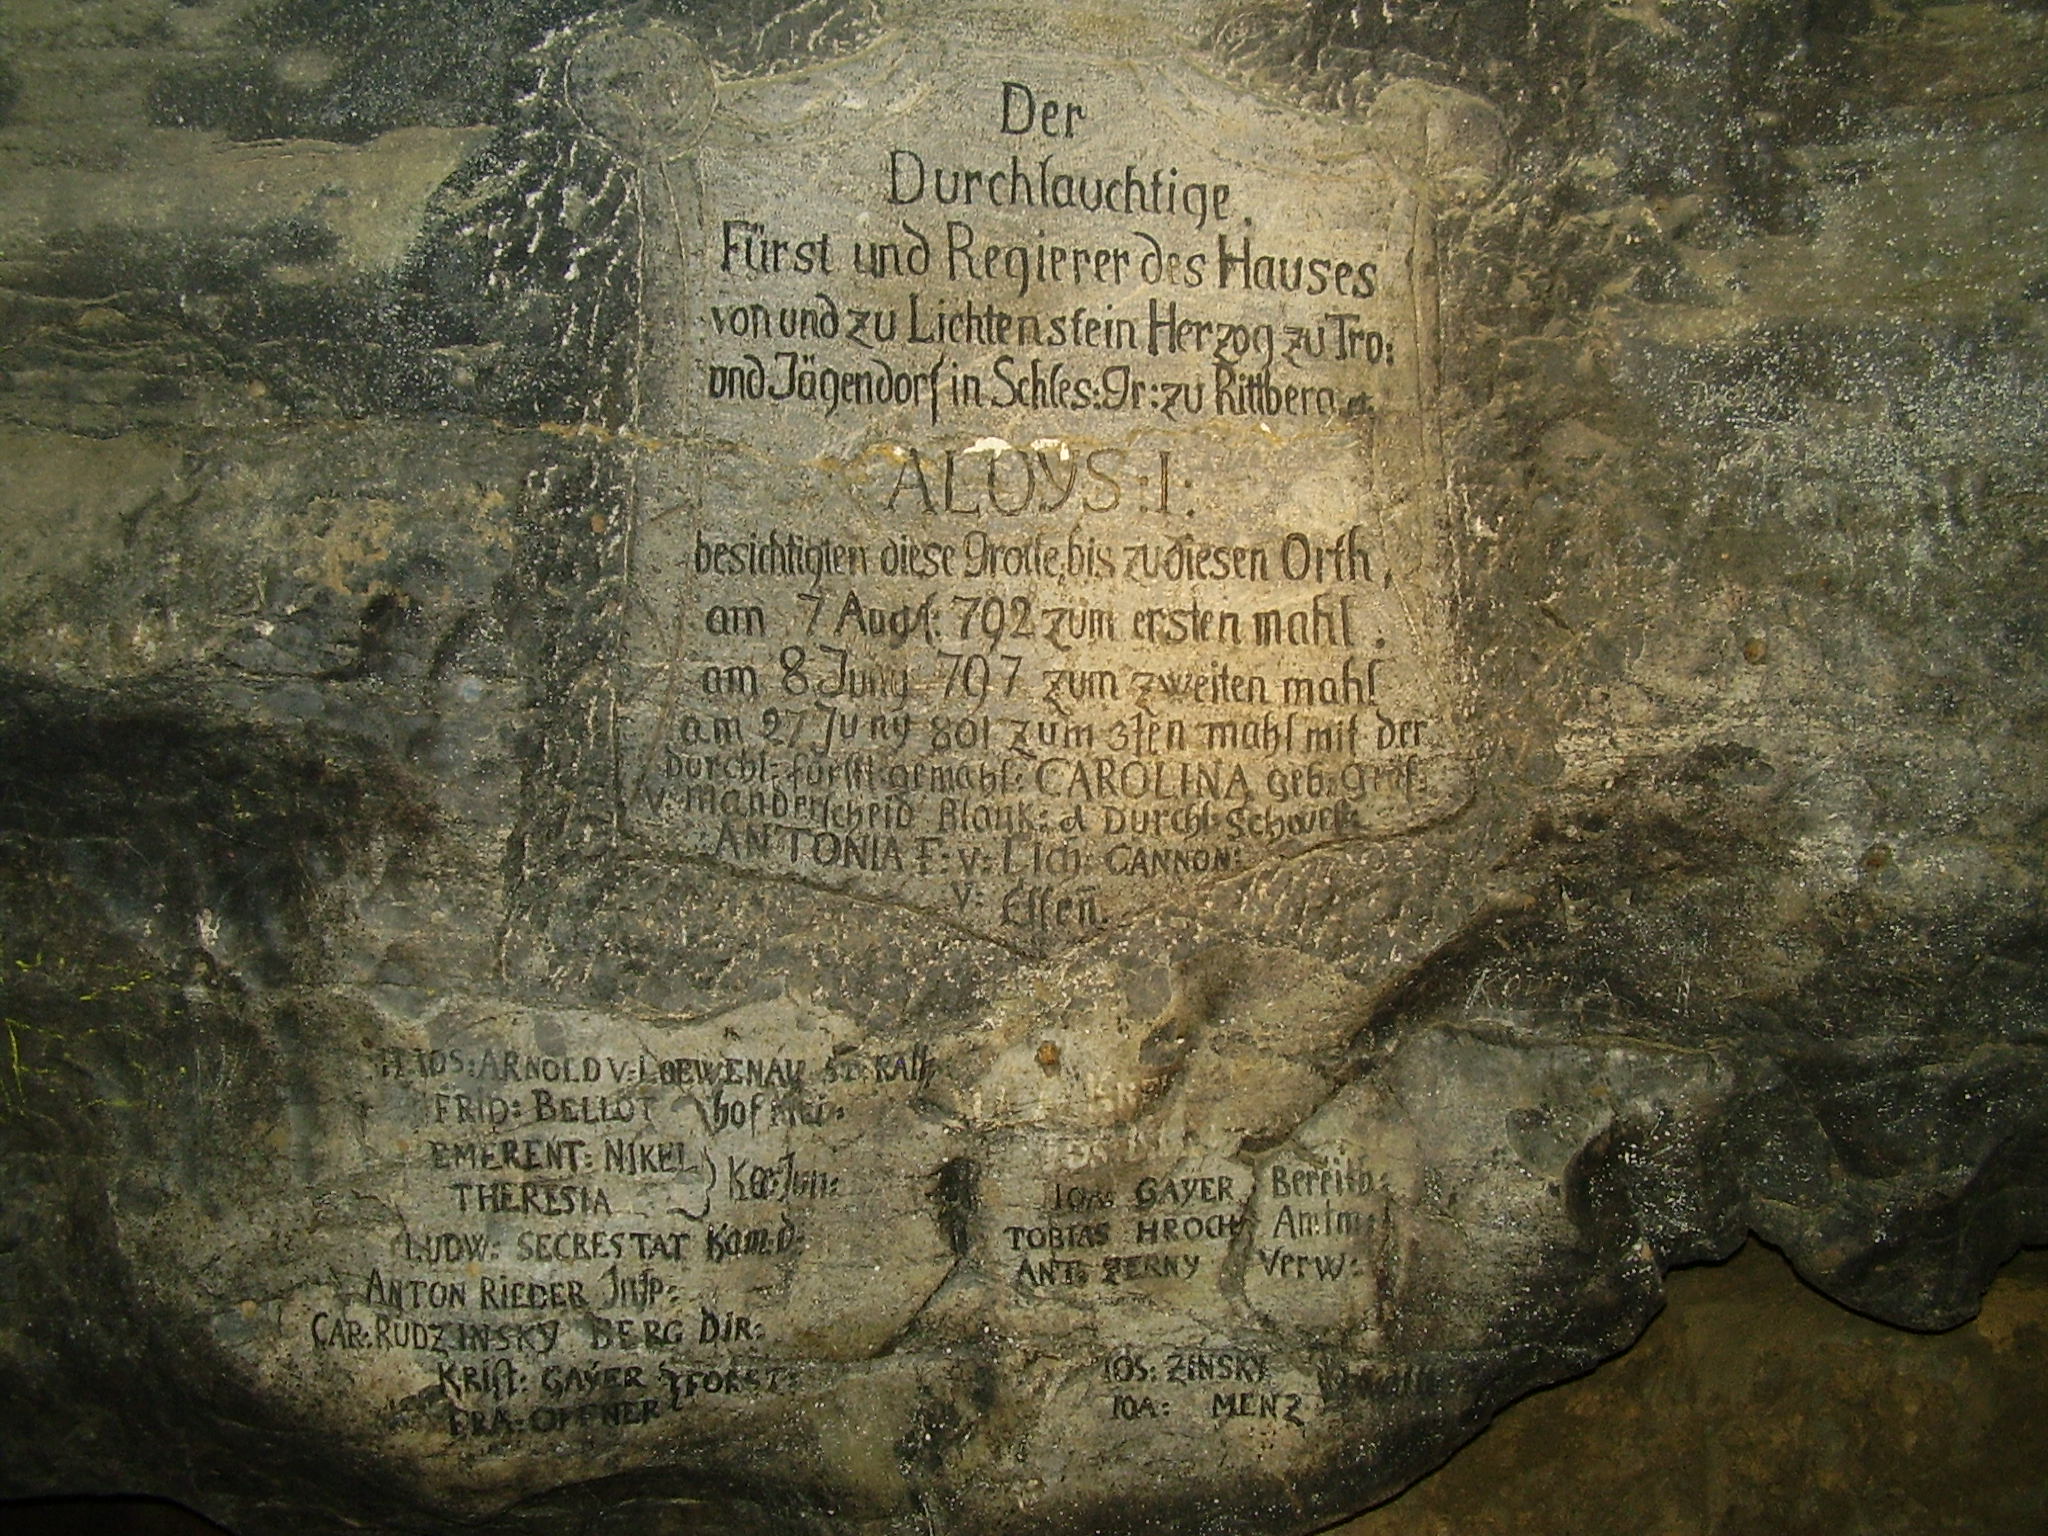 Der
Durchlauchtige,
Fürst und Regierer des Hauses
von und zu Lichtenstein Herzog zu Tro:
und Jägendorf in Schles: Gr: zu Rittberg et.
ALOYS: I:
besichtigten diese Grotte, bis zu diesen Orth,
am 7 Augst: 792 zum ersten mahl.
am 8 Juny 797 zum zweiten mahl
am 27 Juny 801 zum 3ten mahl mit der
Durchl: fürstl: gemahl: CAROLINA geb: Gräf:
v: Manderscheid Blank: d Durchl: Schwest:
ANTONIA F: v: Lich: CANNON:
v: Essen̄.
IOS: ARNOLD V: LOEWENAU ST: RATH
FRID: BELLOT hof Med:
EMERENT: NIKEL
THERESIA
LUDW: SECRESTAT Kam: D:
ANTON RIEDER Insp:
CAR: RUDZINSKY BERG DIR:
Krist: GAYER FORST:
FRA: OPPNER
IOA: GAYER Bereitr:
TOBIAS HROCH Amtm:
ANT: ZERNY Verw:
IOS: ZINSKY
IOA: MENZ